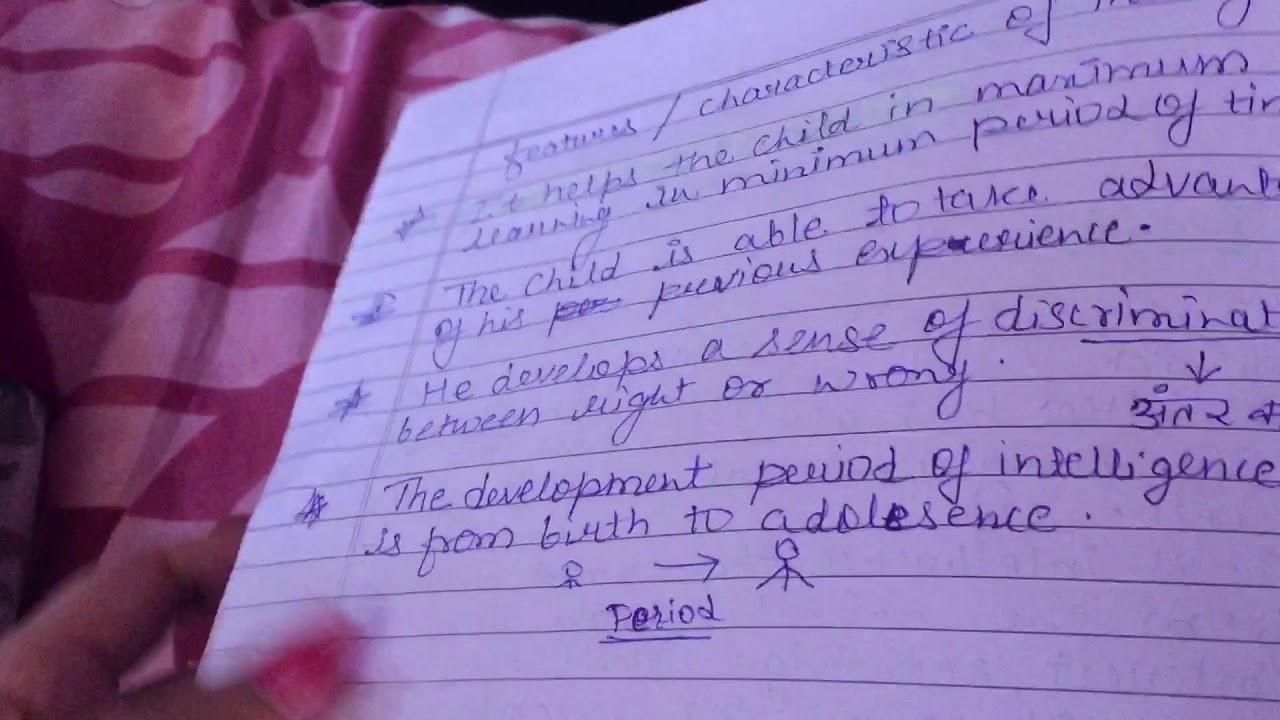 features / characteristic of
It helps the child in maximum
learning in minimum period of
The child is able to take
of his previous experience.
He develops a sense of
between right or wrong.
↓
अंतर
The development period of intelligence
is from birth to adolesence.
→
Period